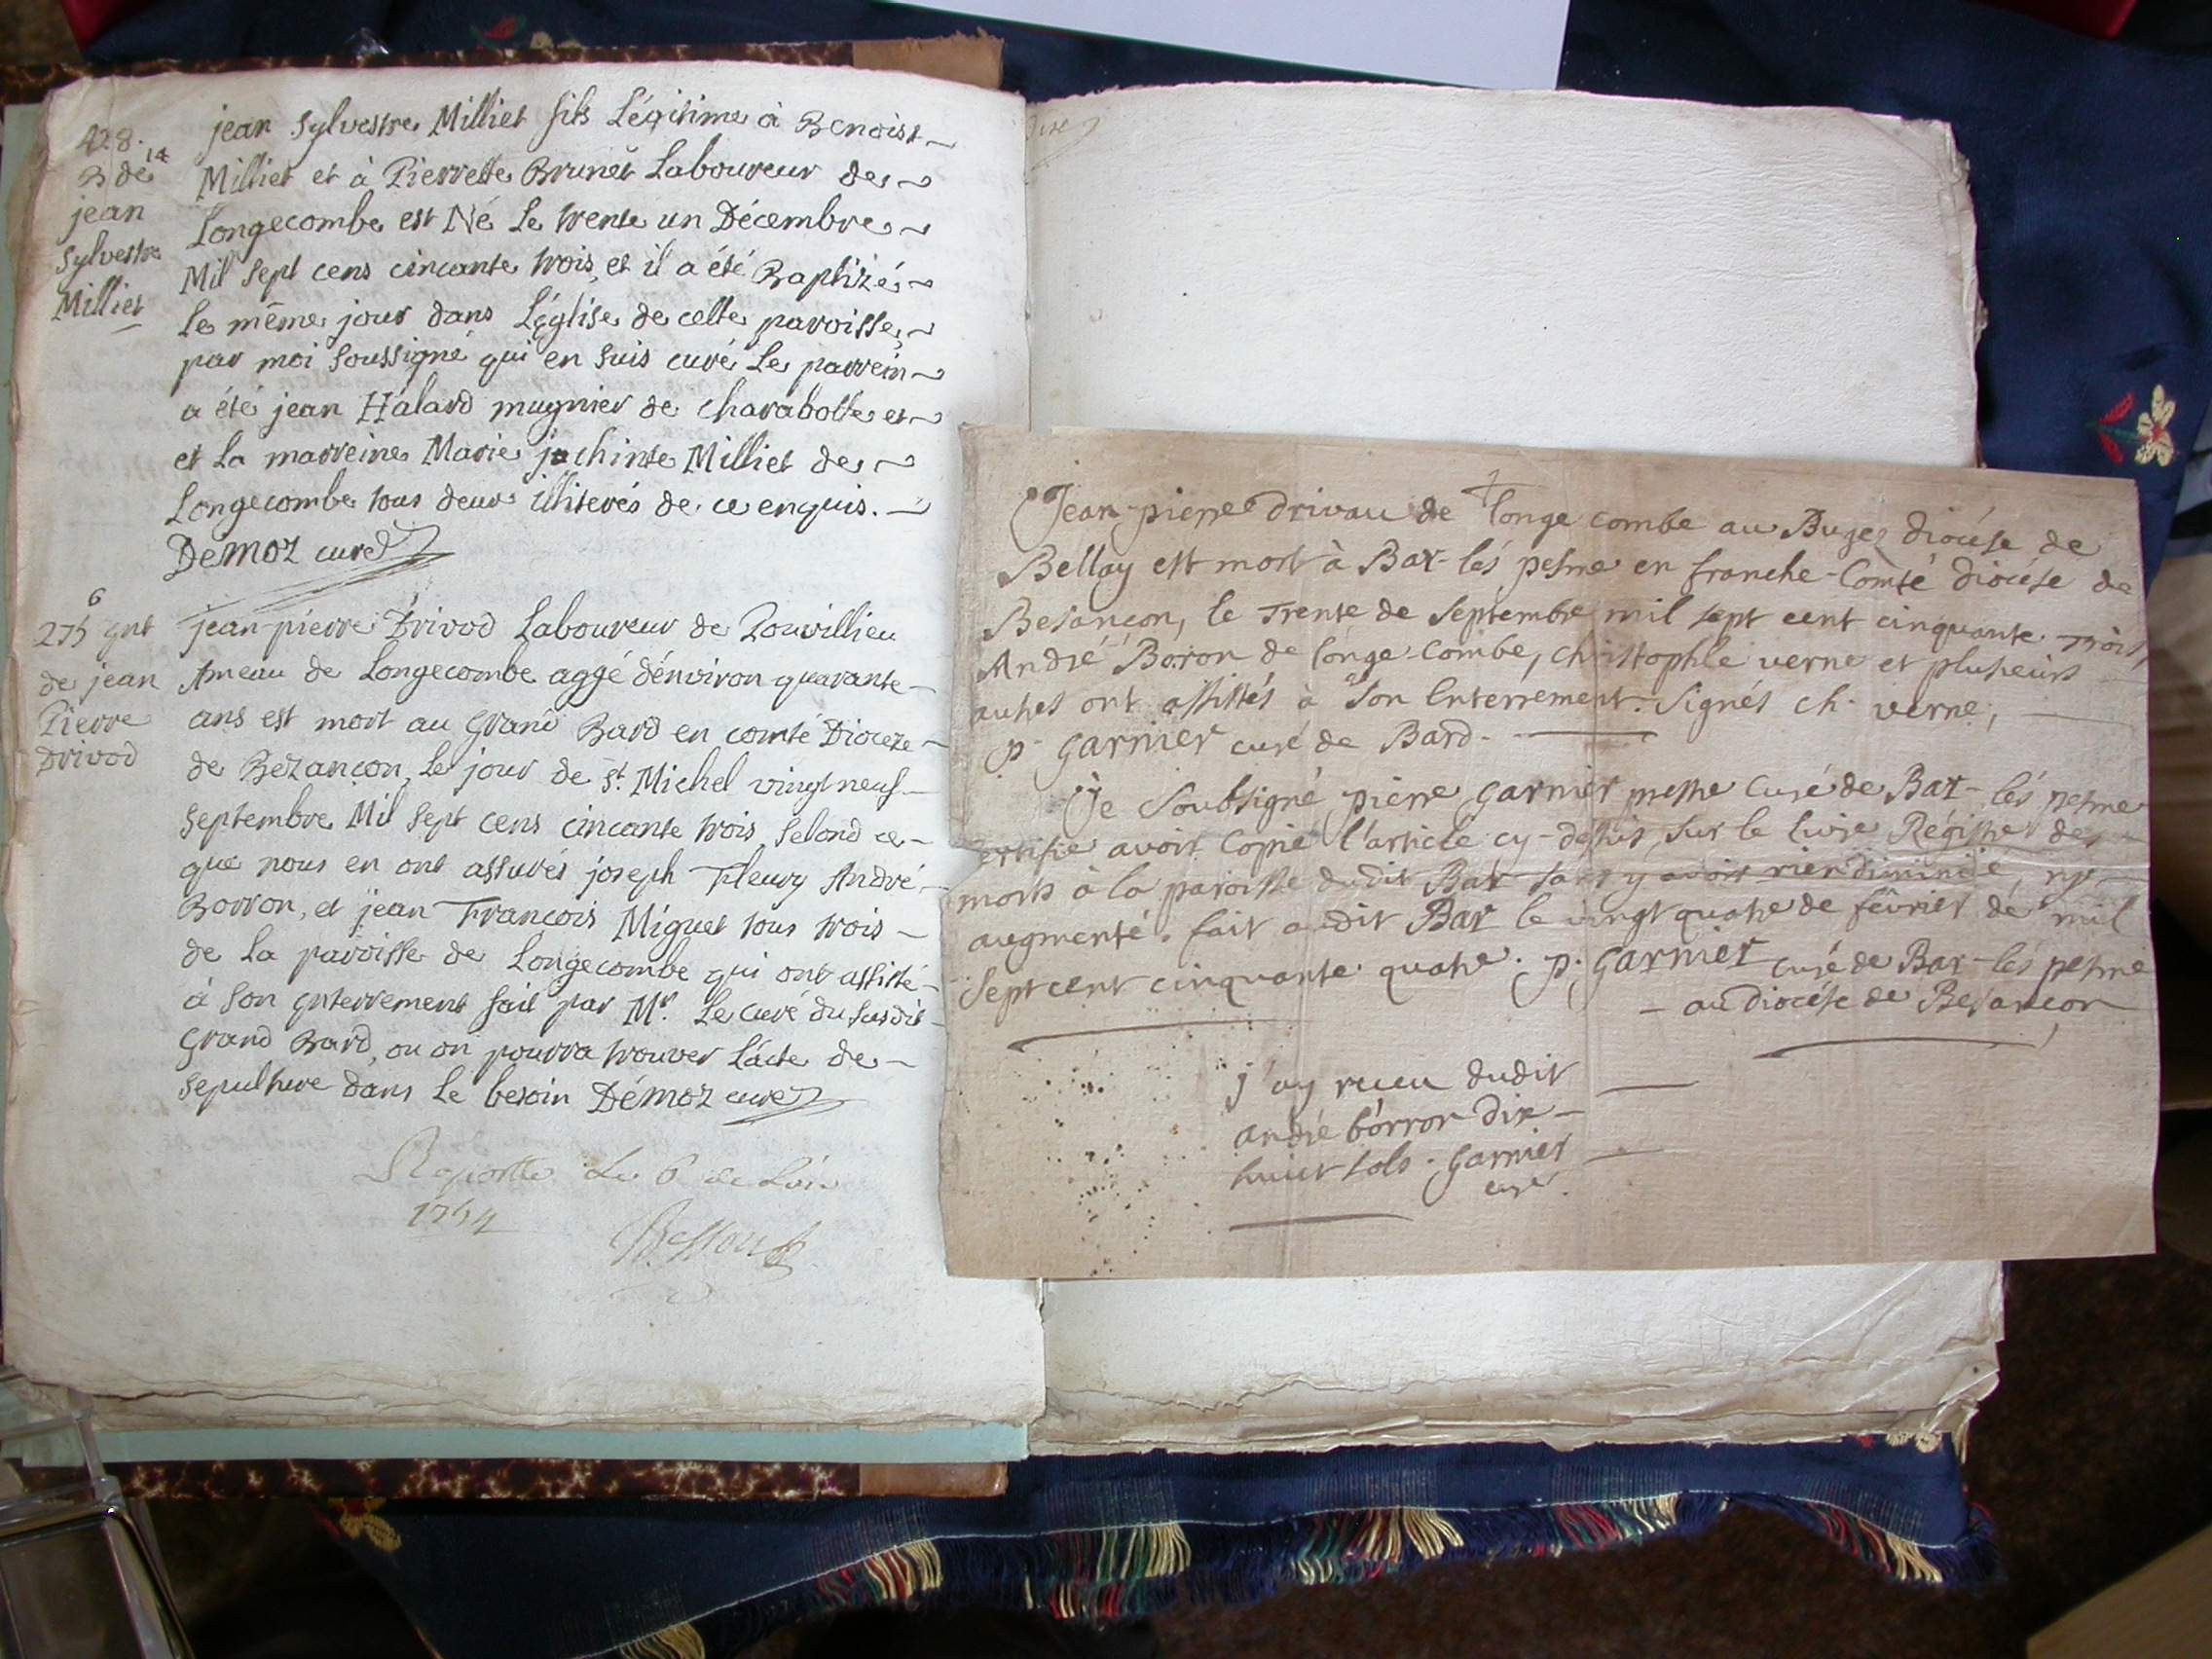 428.
B de 14
jean
Sylvestre
Milliet
jean Sylvestre Milliet fils Légitime à Benoist
Milliet et à Pierrette Brunet Laboureur de
Longecombe est Né Le trente un Décembre
Mil Sept cens cincante trois, et il a été Baptizé
Le même jour dans L'église de cette paroisse
par moi Soussigné qui en suis curé Le parrein
a été jean Halard mugnier de charabotte et
et La marreine Marie jachinte Milliet de
Longecombe tous deux illiterés de ce enquis.
Démoz curé
6
275 gnt
de jean
Pierre
Drivod
jean-pierre Drivod Laboureur de Rouvillieu
Ameau de Longecombe aggé d'énviron quarante
ans est mort au Grand Bard en comté Dioceze
de Bezancon, Le jour de st. Michel vingt neuf
Septembre Mil Sept cens cincante trois, Selond ce
que nous en ont assurés joseph Fleury André
Borron, et jean François Miguet tous trois
de La paroisse de Longecombe qui ont assisté
à Son gnterrement fait par Mr. Le curé du susdit
Grand Bard, ou on pourra trouver L'acte de
Sepulture dans Le besoin Démoz curé
Le 6
1754
Jean-pierre Drivau de longe combe au Bugez diocése de
Bellay est mort à Bar-lés pesme en franche-Comté diocése de
Besançon, le Trente de Septembre mil sept cent cinquante trois,
André Boron de longe-combe, christophle verne et plusieurs
autres ont assistés à Son Enterrement. Signés ch. verne,
p. Garnier curé de Bard.
Je Soubsigné pierre Garnier prestre Curé de Bar-lés pesme
certifie avoir Copié l'article cy-dessus, sur le livre Régistre des
morts à la paroisse dudit Bar sans y avoir rien diminué, ny
augmenté. fait audit Bar le vingt quatre de février de mil
Sept cent cinquante quatre. p. Garnier curé de Bar-lés pesme
au diocése de Besançon
j'ay receu dudit
andré borron dix
huict sols. Garnier
curé.